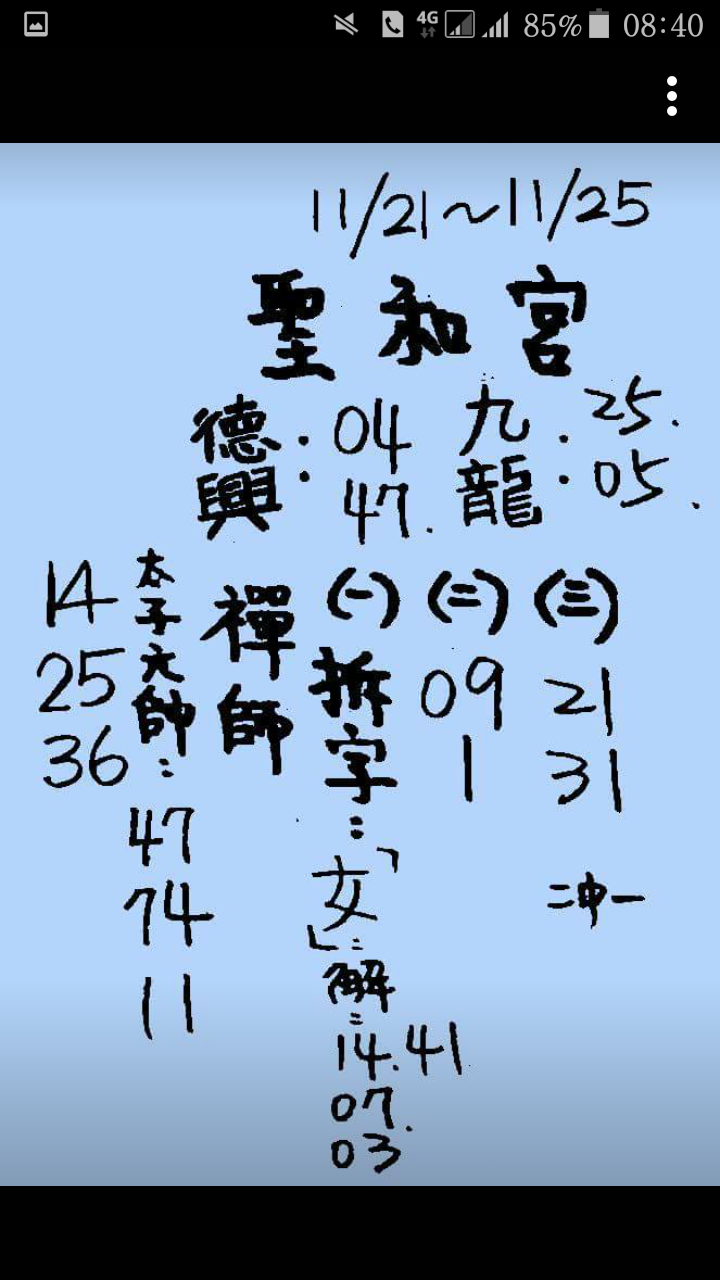 4G 85% 08:40
11/21～11/25
聖和宮
德興：04 47.
九龍：25. 05.
(一) (二) (三)
禪師
拆字：「女」：解：14.41 07. 03
09 1
21 31
二中一
太子元帥：
14 25 36
47 74 11